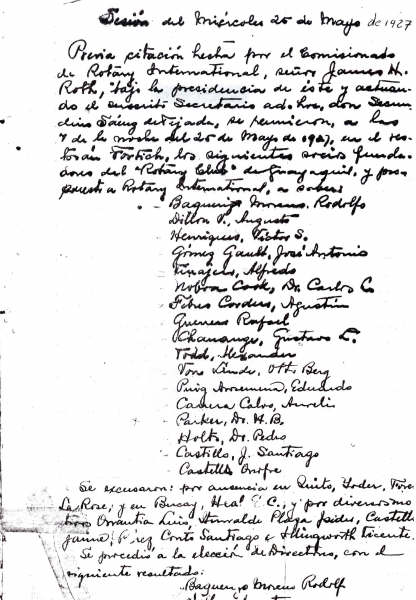 Sesión del Miércoles 25 de Mayo de 1927
Previa citación hecha por el Comisionado
de Rotary International, señor James H.
Roth, bajo la presidencia de éste y actuan-
do el suscrito Secretario ad-hoc, don Secun-
dino Sáinz de Tejada, se reunieron, a las
7 de la noche del 25 de Mayo de 1927, en el res-
torán Fortich, los siguientes socios funda-
dores del "Rotary Club" de Guayaquil, y
a Rotary International, a saber:
Baquerizo Moreno. Rodolfo
Dillon V., Augusto
Henriques, Victor S.
Gómez Gault, José Antonio
Tinajero, Alfredo
Noboa Cook, Dr. Carlos C.
Febres Cordero, Agustín
Guerrero Rafael
Gustavo L.
Todd, Alexander
Von Linde, Otto Berg
Puig Arosemena, Eduardo
Camera Calvo, Aurelio
Parker, Dr. H. B.
Holts, Dr. Pedro
Castillo, J. Santiago
Castillo Onofre
Se excusaron: por ausencia en Quito, Yoder,
La Rose; y en Bucay, E. C., y por diversos mo-
tivos Orrantia Luis, Plaza Castillo
Jaime, Pérez Conto Santiago e Illingworth Vicente.
Se procedió a la elección de Directores, con el
siguiente resultado:
Baquerizo Moreno Rodolfo